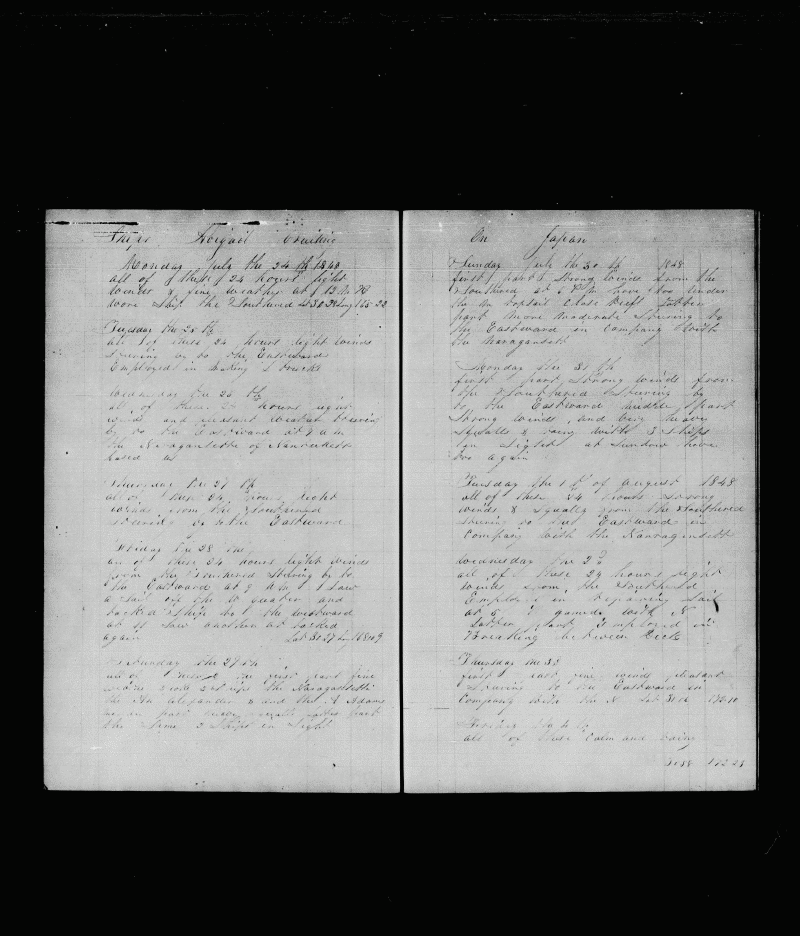 Ships Abigail Cruising
Monday July the 24 th 1848
all of these 24 hours light
winds & fine weather at
wore Ship the Southward
Tuesday the 25 th
all of these 24 hours light winds
steering by to the Eastward
Employed in making
Wednesday the 26 th
all of these 24 hours light
winds and pleasant weather steering
by to the Eastward at 9 a m
the Naragansette of Nantuckett
Thursday the 27 th
all of these 24 hours light
winds from the Southward
steering by to the Eastward
Friday the 28 th
all of these 24 hours light winds
from the Southered Steering by to
the Eastward at 9 A M Saw
a sail off the quarter and
tacked Ship to the westward
at 11 saw another at tacked
again Lat 31 27
Saturday the 29 th
first part fine
winds the Naragansette
the Alexander & and the A Adams
part
the time 3 Ships in Sight
On Japan
Sunday July the 30 th 1848
first part Strong winds from the
Southered at have too under
topsail Close Reeft latter
part more moderate Steering by
the Eastward in Company with
the naragansett
Monday the 31 th
first part Strong winds from
the Southered Steering by
to the Eastward middle part
Strong winds and very heavy
Squalls & rainy with 3 Ships
in Sight at Sundow have
too again
Tuesday the 1 st of august 1848
all of these 24 hours strong
winds & squaly from the Southered
steering to the Eastward in
Company with the Narragansett
Wednesday the 2 d
all of these 24 hours light
winds from the Southerd
Employed in repairing Sail
at 5 gamed with N
latter part Employed in
Breaking between Decks
Thursday the 3 d
first part fine winds pleasant
Steering to the Eastward in
Company with the N
Friday the 4 th
all of these Calm and rainy